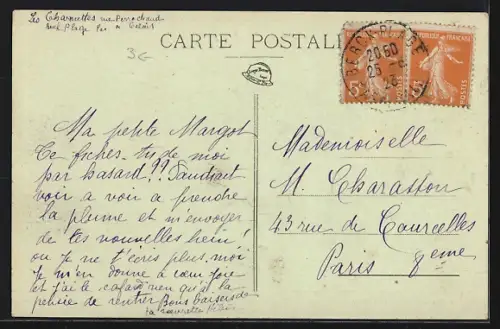 Les Charmettes rue Perrochaud
Berck Plage Pas de Calais
3€
CARTE POSTALE
BERCK-PLAGE
20 50
25
23
Ma petite Margot
Te fiches-tu de moi
par hasard?? Faudrait
voir à voir à prendre
la plume et m'envoyer
de tes nouvelles hein!
ou je ne t'écris plus, moi
Je m'en donne à cœur joie
et j'ai le cafard rien qu'à la
pensée de rentrer Bons baisers de
ta
Mademoiselle
M. Charasson
43 rue de Courcelles
Paris 8eme